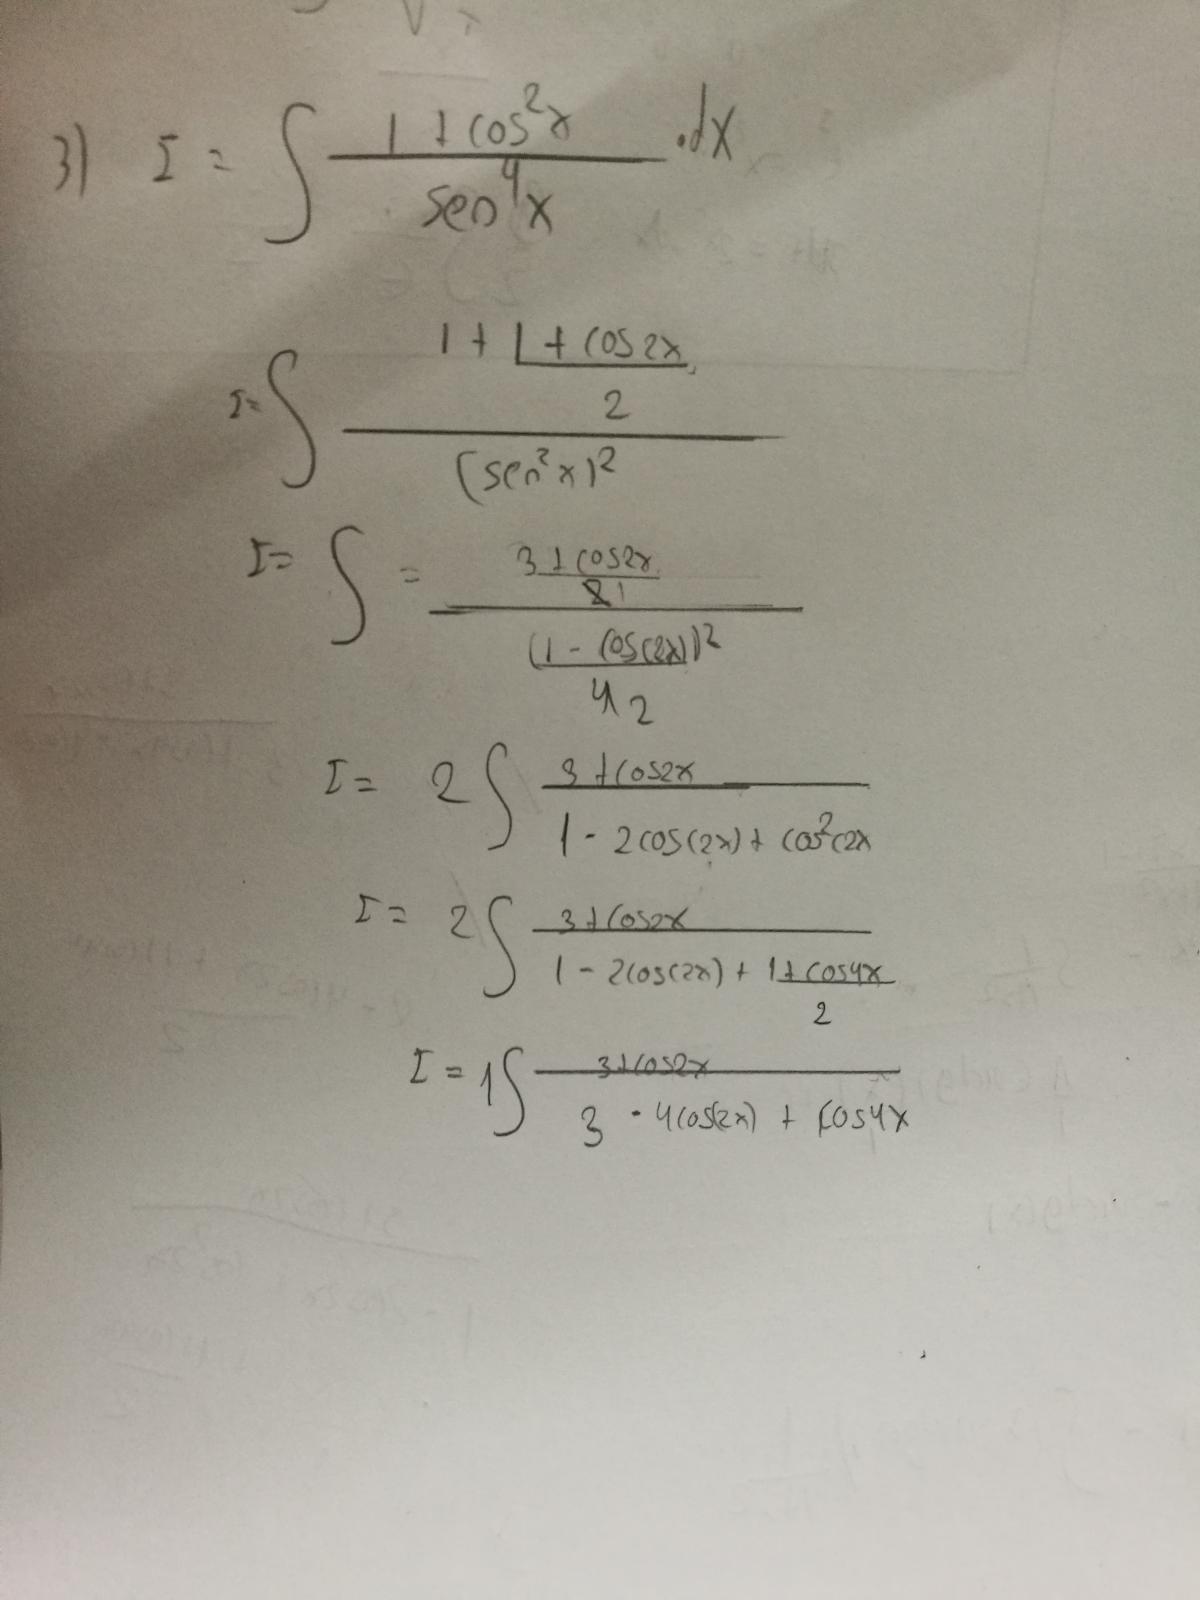 3) I = ∫ (1 + cos²x)/(sen⁴x) .dx
I= ∫ (1 + (1 + cos 2x)/2)/((sen²x)²)
I= ∫ = ((3 + cos2x)/2 1)/((1 - cos(2x))²/4 2)
I= 2 ∫ (3 + cos2x)/(1 - 2cos(2x) + cos²(2x)
I= 2 ∫ (3 + cos2x)/(1 - 2cos(2x) + (1 + cos4x)/2)
I = 1 ∫ (3 + cos2x)/(3 - 4cos(2x) + cos4x)